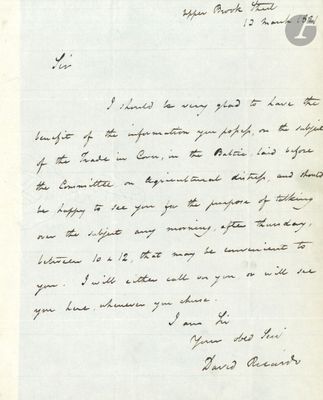 Upper Brook Street
13 March 1821
Sir
I should be very glad to have the
benefit of the information you possess, on the subject
of the Trade in Corn, in the Baltic, laid before
the Committee on Agricultural distress, and should
be happy to see you for the purpose of talking
over the subject any morning, after thursday,
between 10 & 12, that may be convenient to
you. I will either call on you or will see
you here, whenever you chuse.
I am Sir
Your obed Serv
David Ricardo